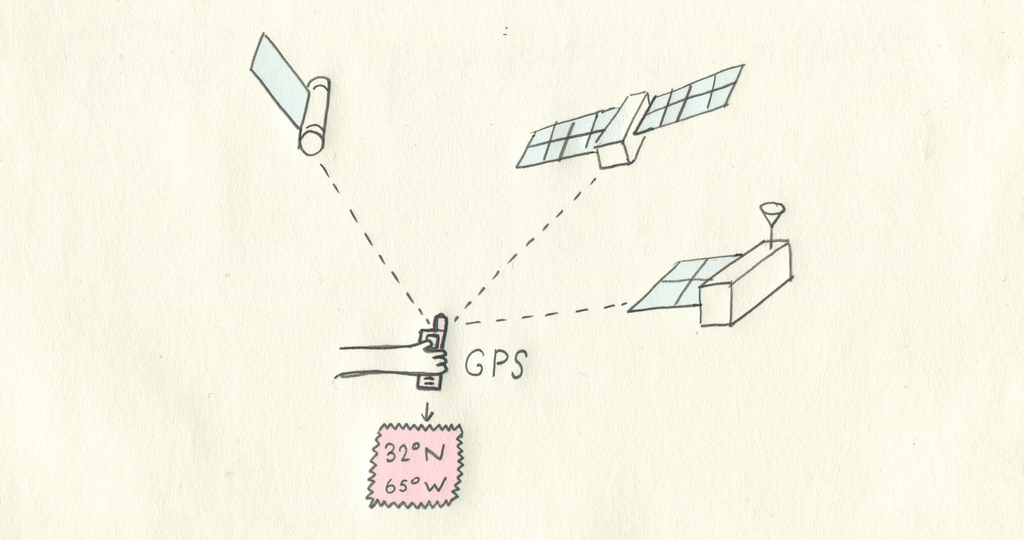 GPS
32°N
65°W